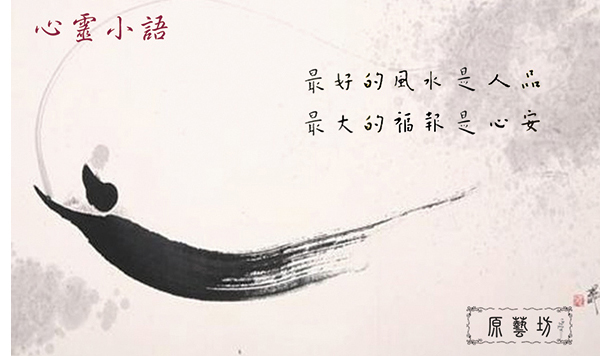 心靈小語
最好的風水是人品
最大的福報是心安
原藝坊